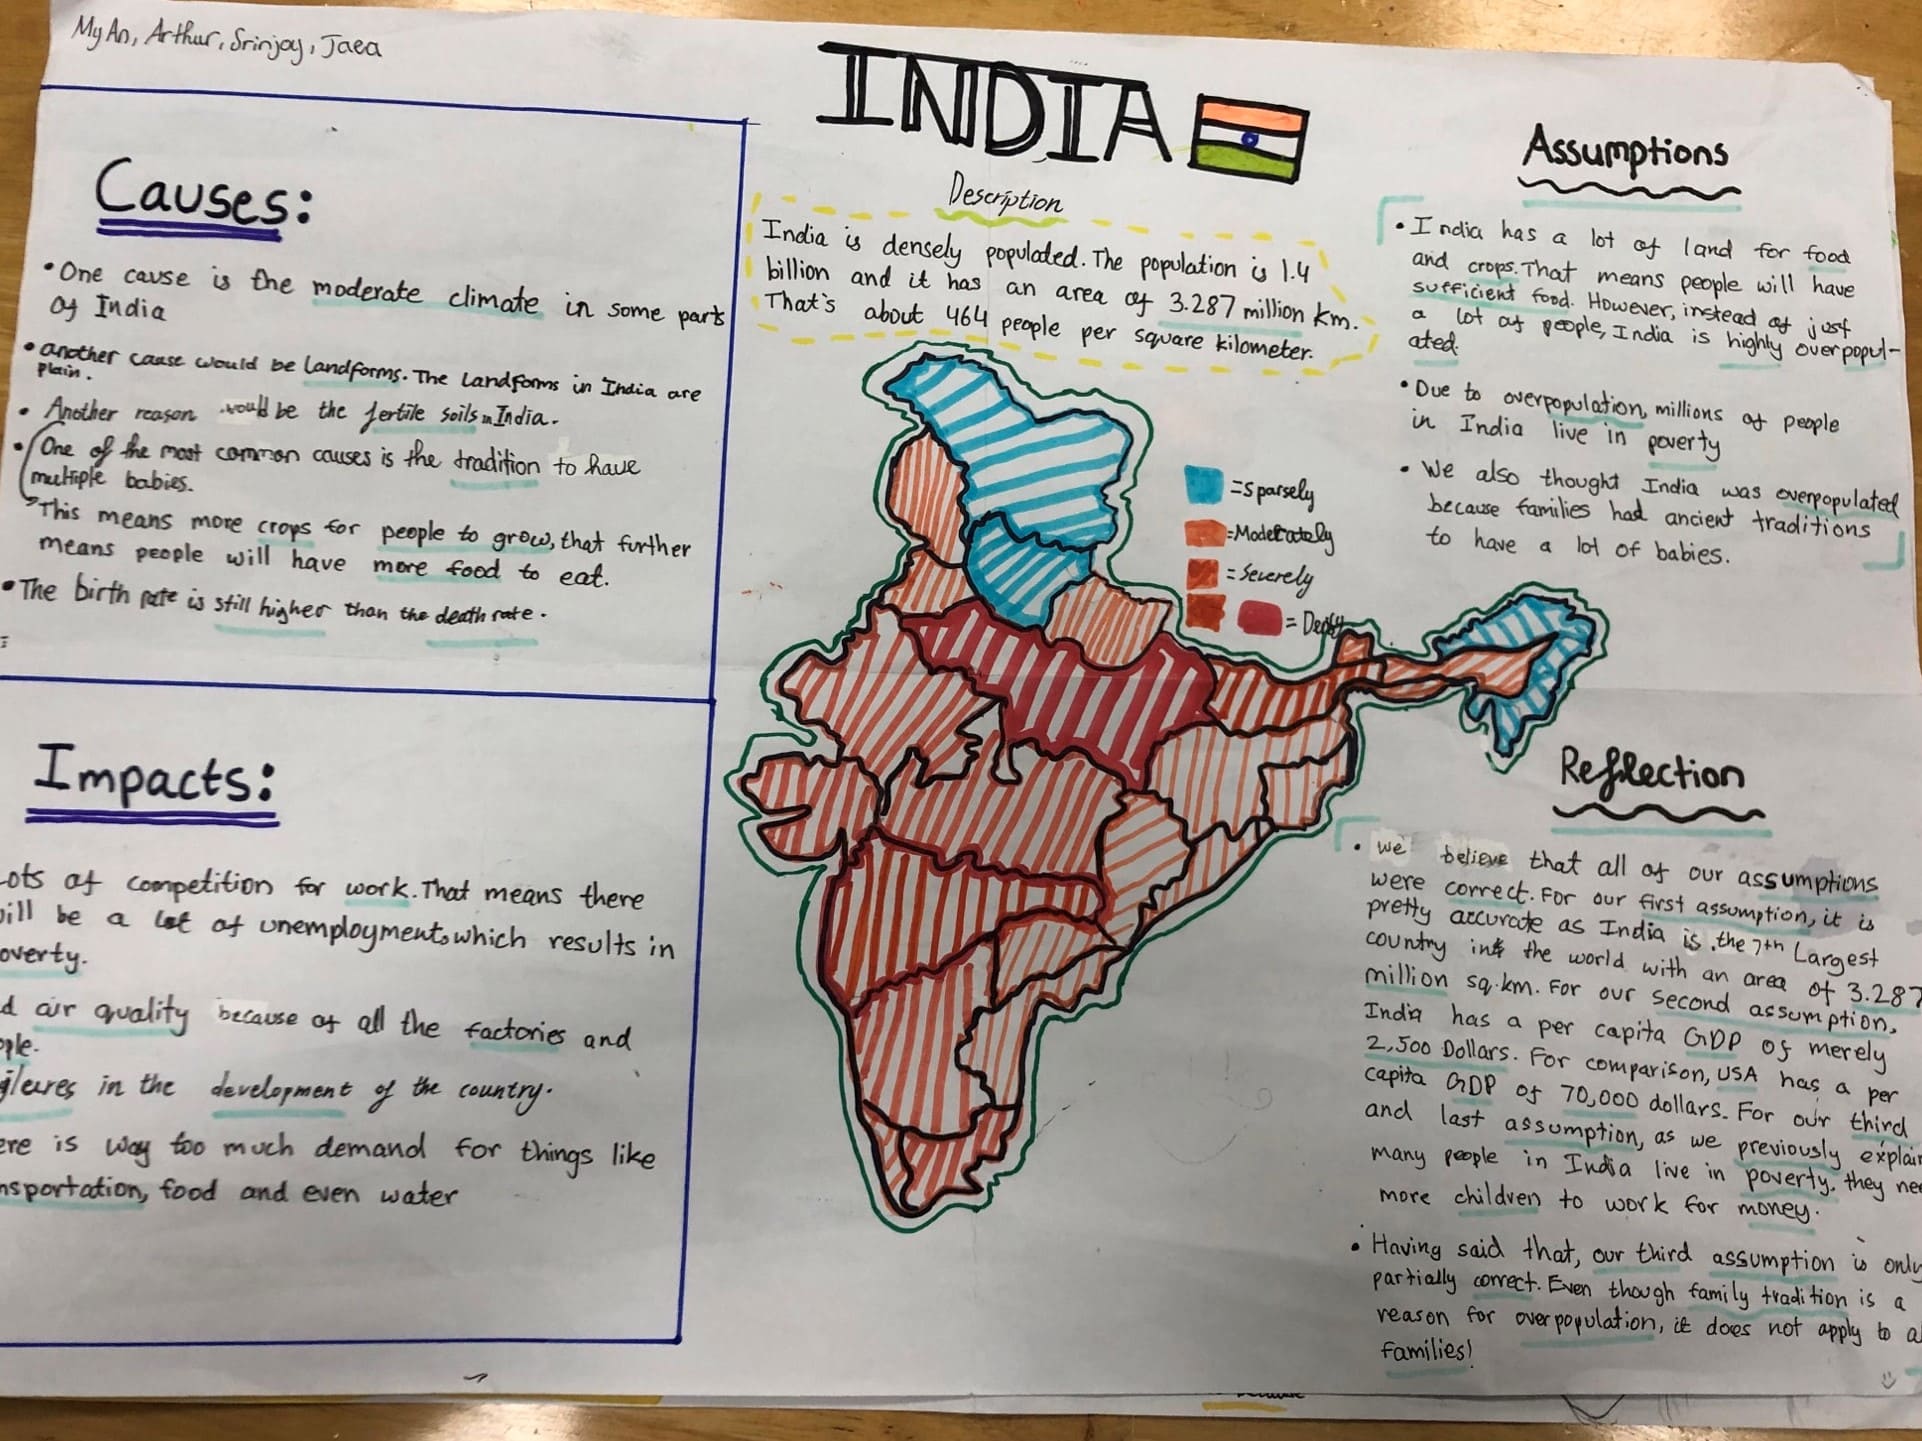 My An, Arthur, Srinjoy, Jaea
INDIA
Causes:
• One cause is the moderate climate in some parts
of India
• another cause would be landforms. The landforms in India are
plain.
• Another reason would be the fertile soils in India.
• One of the most common causes is the tradition to have
multiple babies.
This means more crops for people to grow, that further
means people will have more food to eat.
• The birth rate is still higher than the death rate.
Impacts:
ots of competition for work. That means there
ill be a lot of unemployment, which results in
overty.
d air quality because of all the factories and
ple.
in the development of the country.
ere is way too much demand for things like
nsportation, food and even water
Description
India is densely populated. The population is 1.4
billion and it has an area of 3.287 million km.
That's about 464 people per square kilometer.
= Sparsely
= Moderately
= Severely
=
Assumptions
• India has a lot of land for food
and crops. That means people will have
sufficient food. However, instead of just
a lot of people, India is highly overpopul-
ated.
• Due to overpopulation, millions of people
in India live in poverty
• We also thought India was overpopulated
because families had ancient traditions
to have a lot of babies.
Reflection
• we believe that all of our assumptions
were correct. For our first assumption, it is
pretty accurate as India is the 7th Largest
country in the world with an area of 3.287
million sq.km. For our second assumption,
India has a per capita GDP of merely
2,500 Dollars. For comparison, USA has a per
capita GDP of 70,000 dollars. For our third
and last assumption, as we previously explain
many people in India live in poverty. they nee
more children to work for money.
• Having said that, our third assumption is only
partially correct. Even though family tradition is a
reason for overpopulation, it does not apply to al
families!